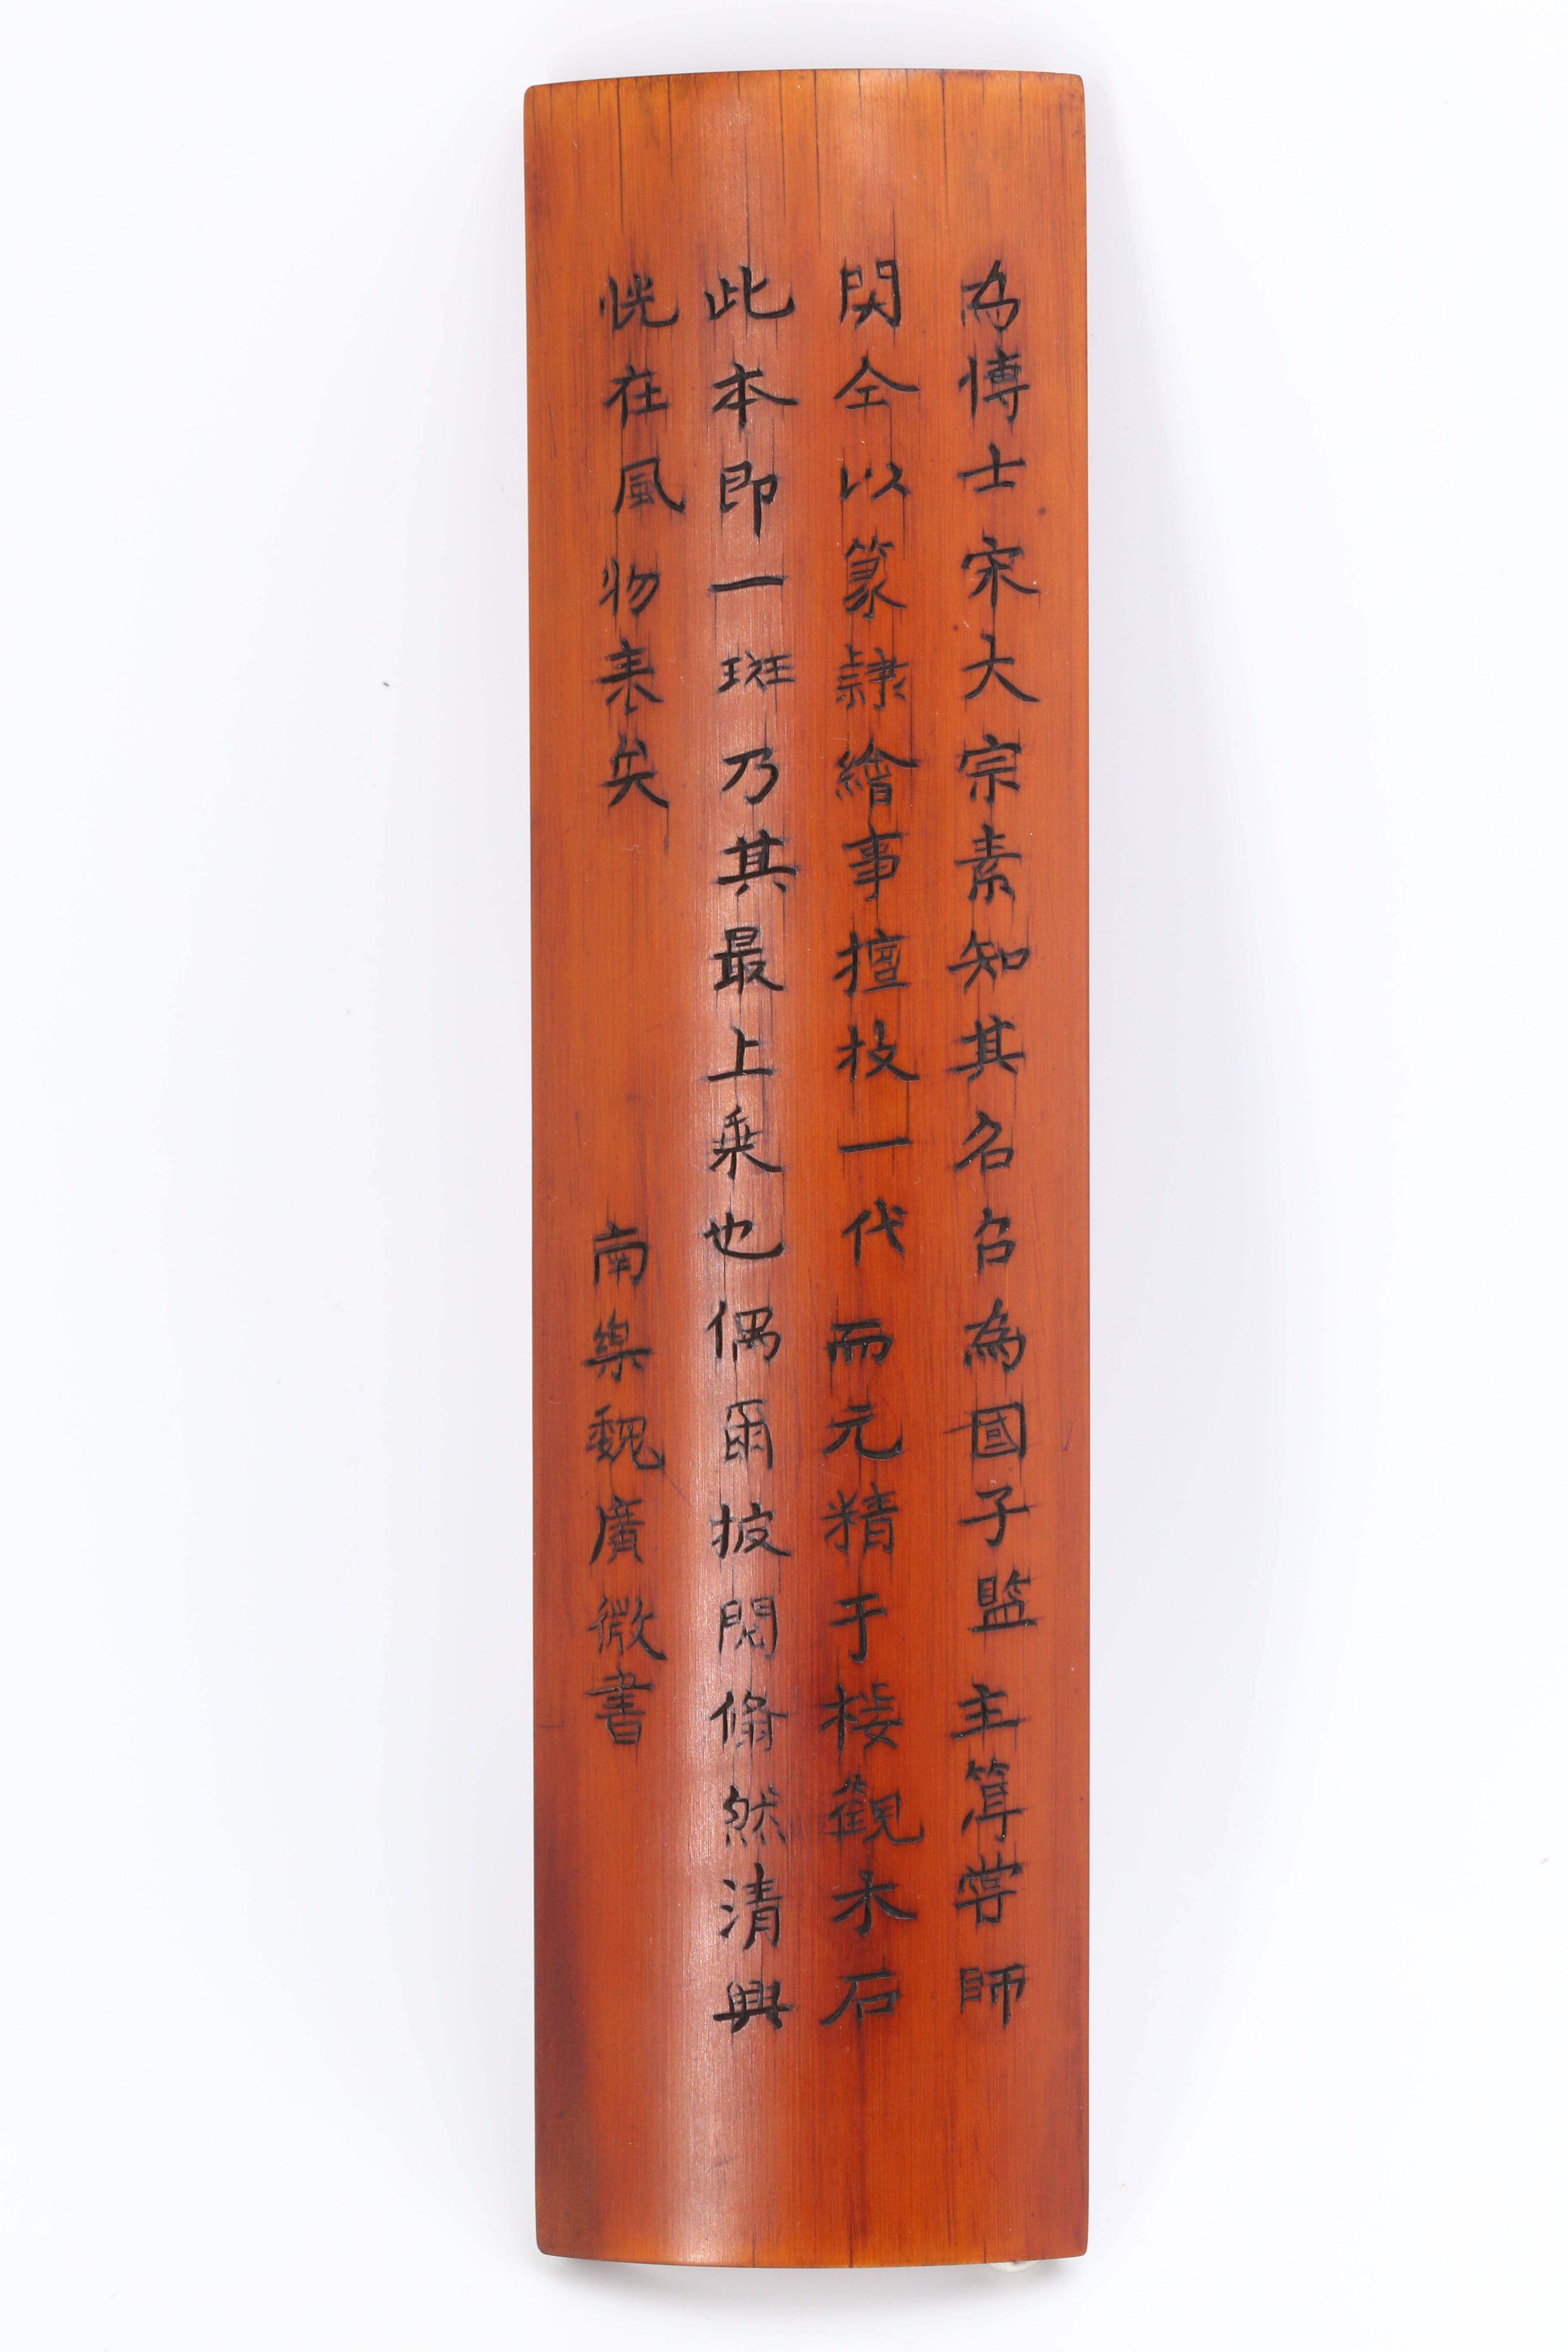 為博士宋大宗素知其名召為國子監主簿嘗師
関仝以篆隷繪事擅技一代而元精于楼觀木石
此本即一斑乃其最上乗也偶爾披閱翛然清興
恍在風物表矣　　　南樂魏廣微書